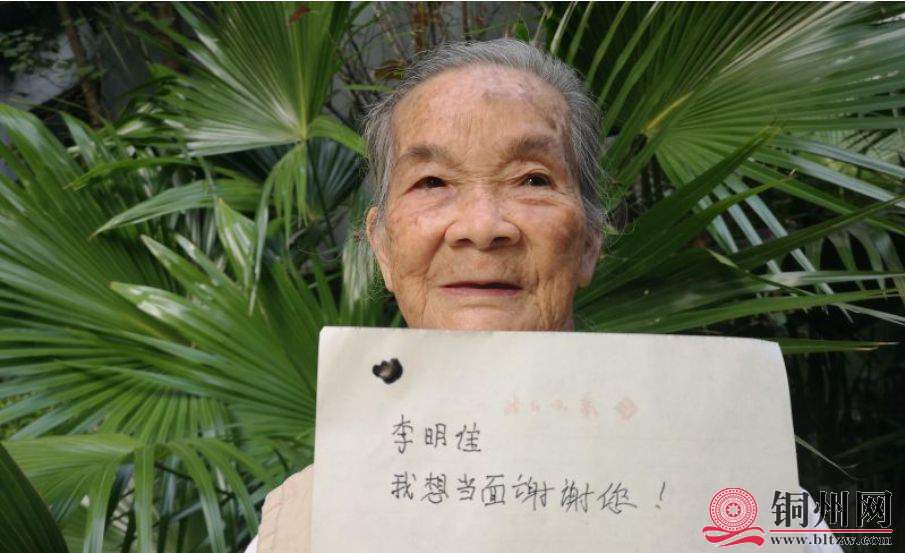 李明佳
我想当面谢谢您！
铜州网
www.bltzw.com